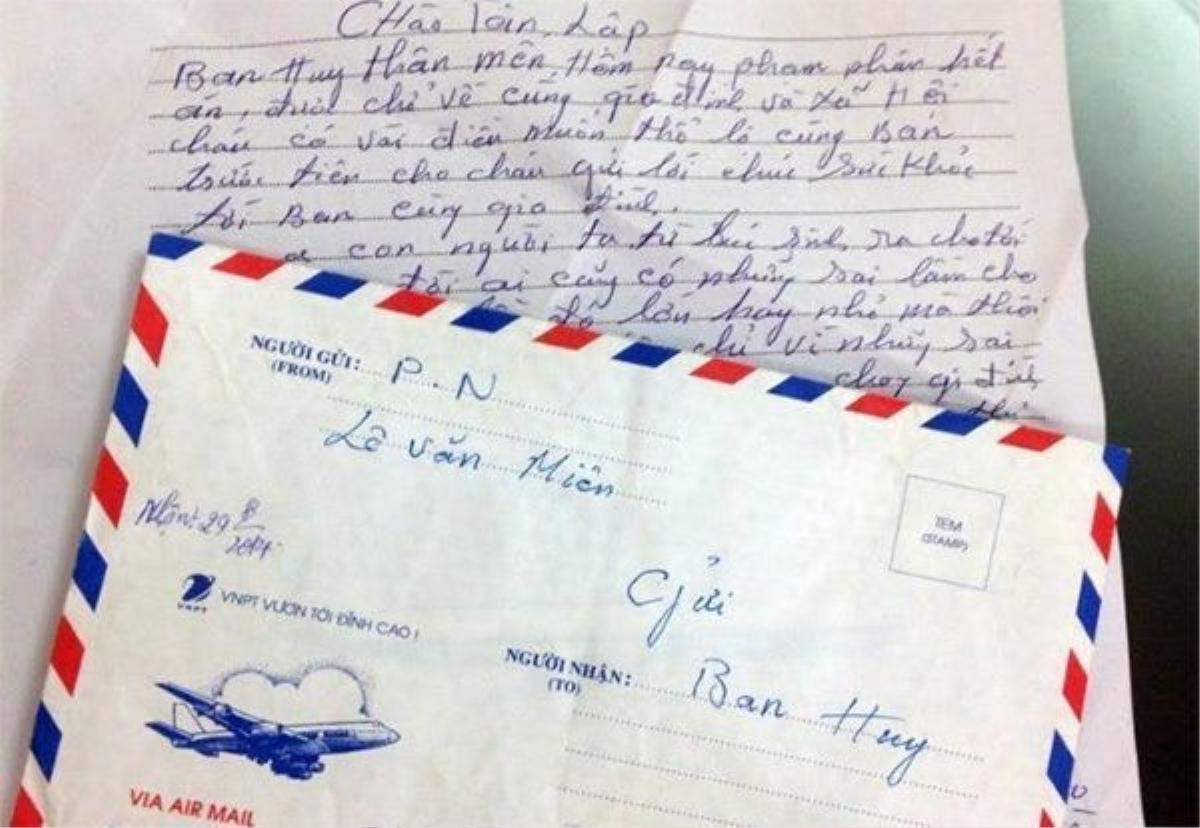 Chào Tôn Lập
Ban Huy thân mến, Hôm nay phạm phán hết
án, được chở về cùng gia đình và xã Hội
cháu có vài điều muốn thổ lộ cùng Ban
trước tiên cho cháu gửi lời chúc sức khỏe
tới Ban cùng gia đình.
con người ta từ lúc sinh ra cho tới
ai cũng có những sai lầm cho
lớn hay nhỏ mà thôi
chỉ vì những sai
NGƯỜI GỬI: P.N
(FROM)
Lê Văn Miên
Nhận: 29
VNPT
VNPT VƯƠN TỚI ĐỈNH CAO !
TEM
(STAMP)
Gửi
NGƯỜI NHẬN: Ban Huy
(TO)
VIA AIR MAIL